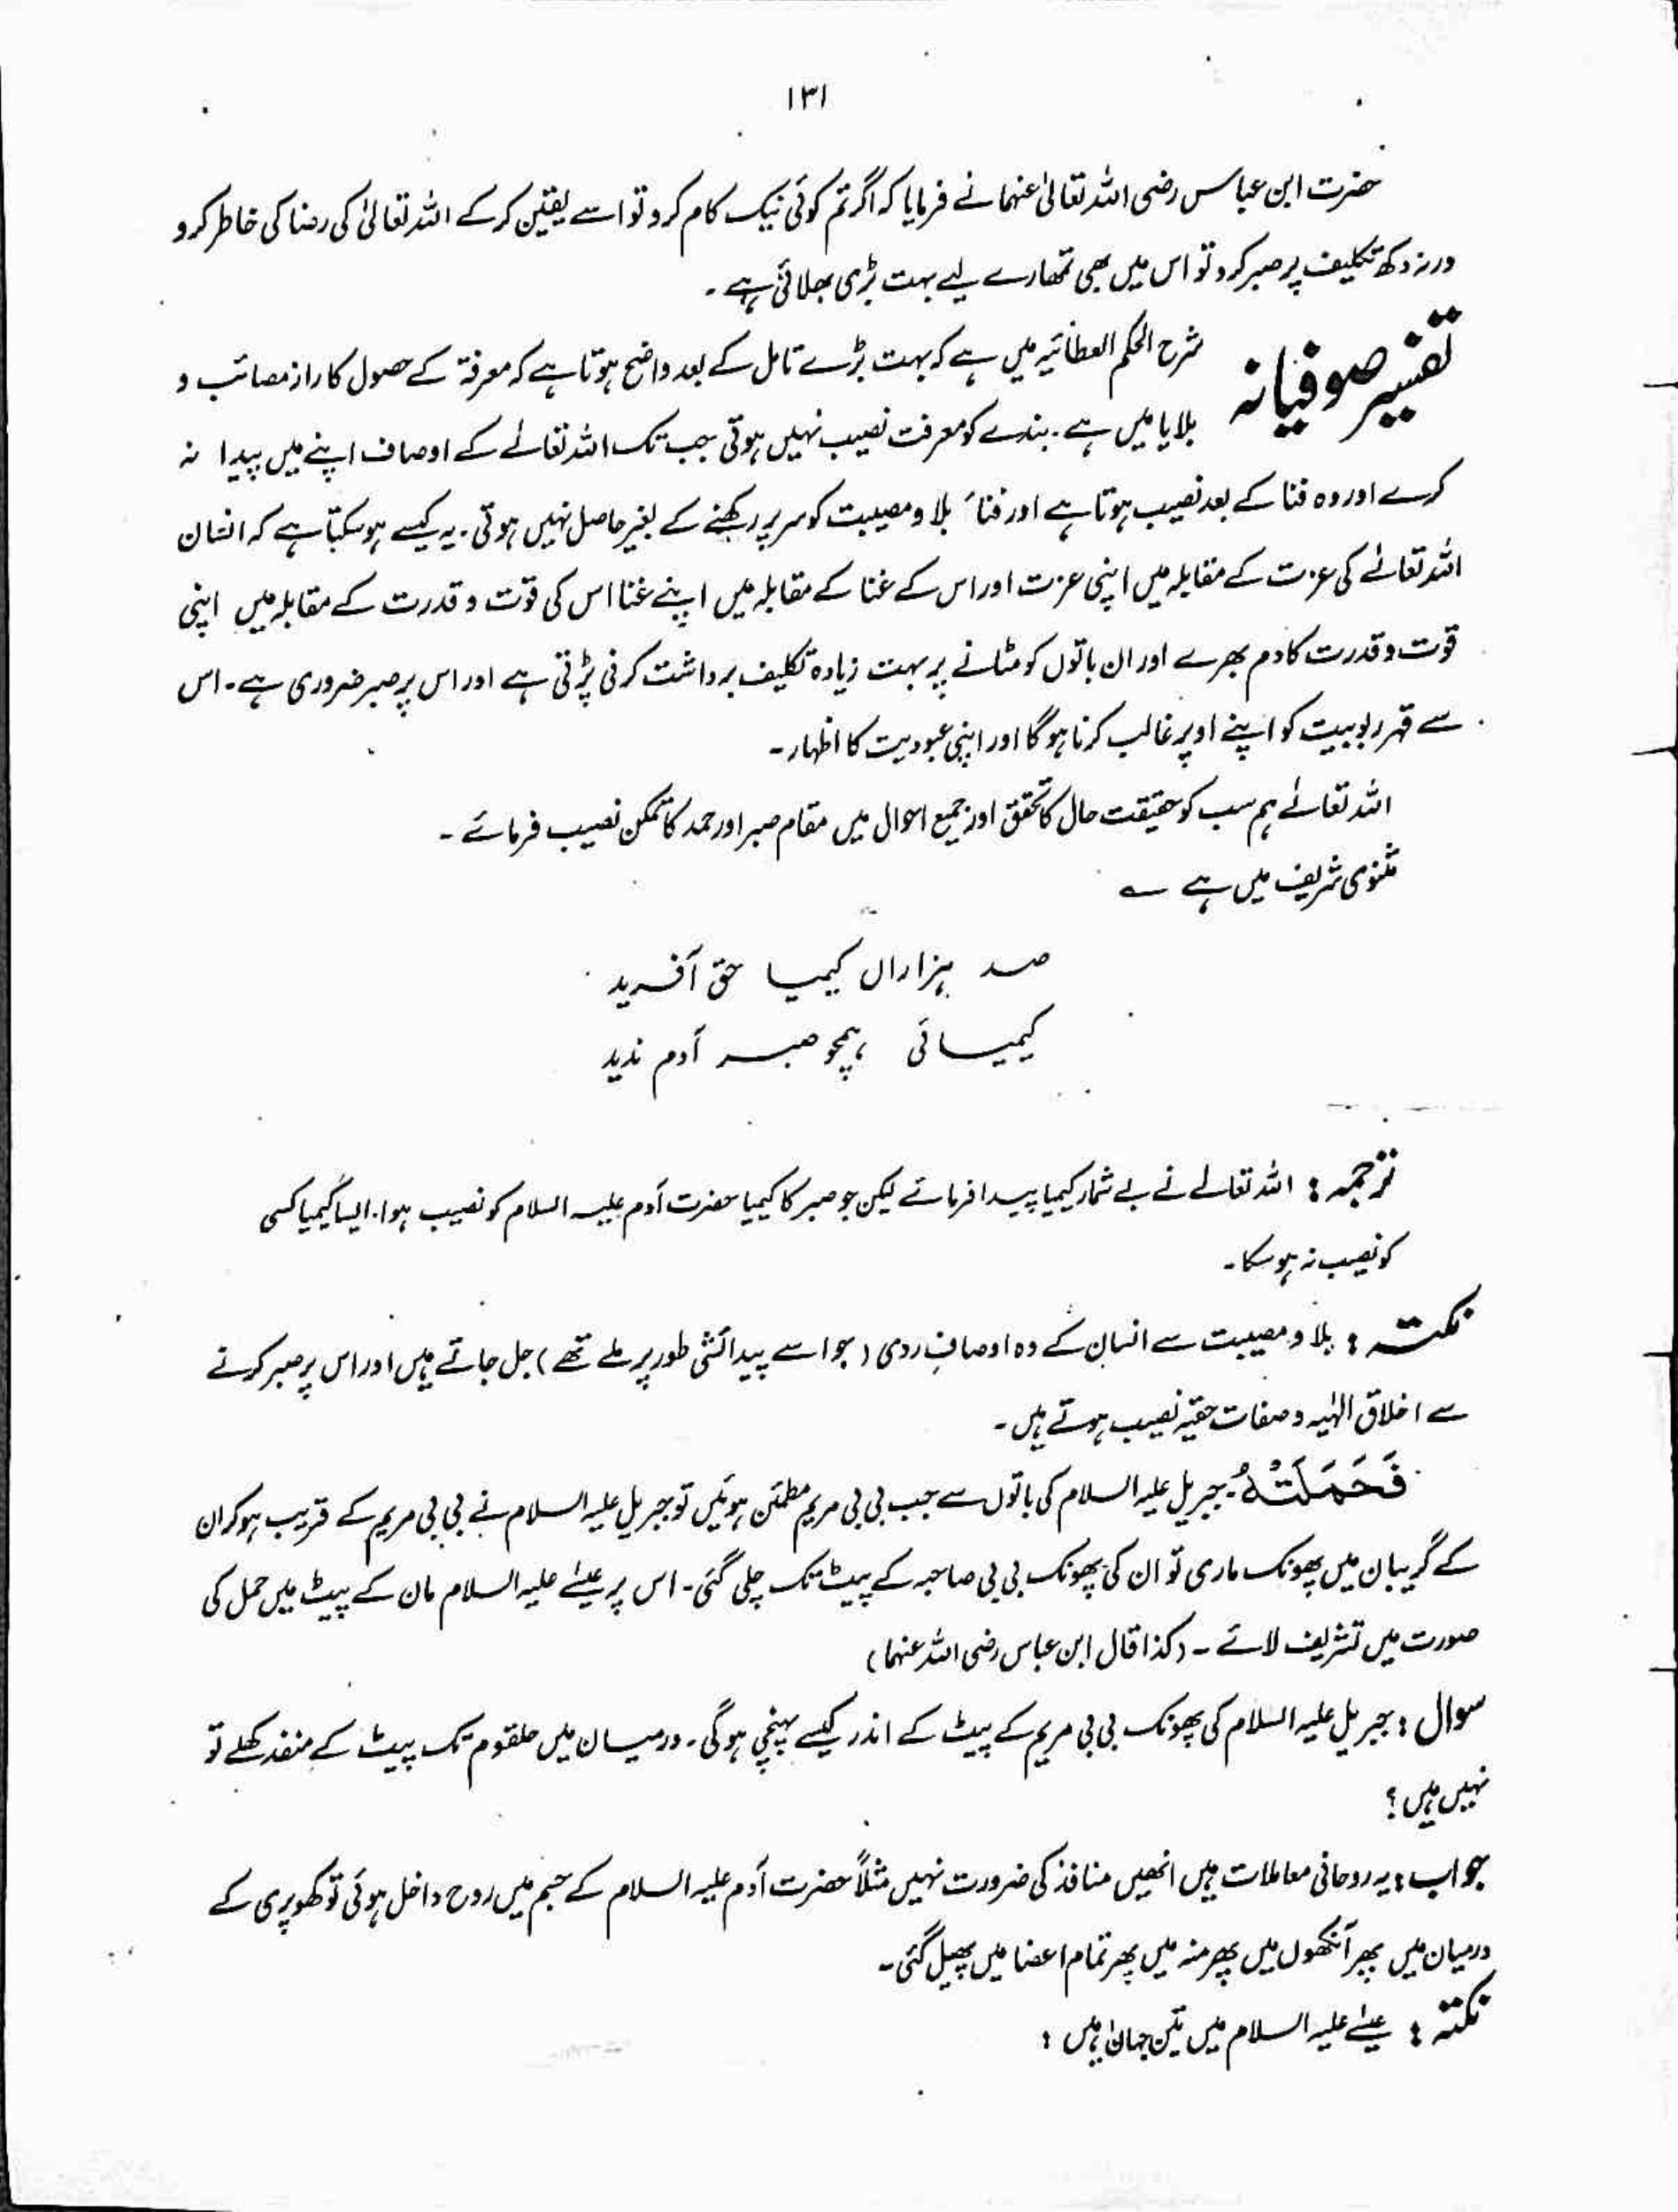 ۱۳۱
حضرت ابن عباس رضی اللہ تعالیٰ عنہما نے فرمایا کہ اگر تم کوئی نیک کام کرو تو اسے یقین کرکے اللہ تعالیٰ کی رضا کی خاطر کرو
ورنہ دکھ تکلیف پر صبر کرو تو اس میں بھی تمھارے لیے بہت بڑی بھلائی ہے ۔
تفسیر صوفیانہ شرح الحکم العطائیہ میں ہے کہ بہت بڑے تامل کے بعد واضح ہوتا ہے کہ معرفۃ کے حصول کا راز مصائب و
بلایا میں ہے ۔ بندے کو معرفت نصیب نہیں ہوتی جب تک اللہ تعالےٰ کے اوصاف اپنے میں پیدا نہ
کرے اور وہ فنا کے بعد نصیب ہوتا ہے اور فناء بلا و مصیبت کو سر پر رکھنے کے بغیر حاصل نہیں ہوتی ۔ یہ کیسے ہو سکتا ہے کہ انسان
اللہ تعالےٰ کی عزت کے مقابلہ میں اپنی عزت اور اس کے غنا کے مقابلہ میں اپنے غنا اس کی قوت و قدرت کے مقابلہ میں اپنی
قوت و قدرت کا دم بھرے اور ان باتوں کو مٹانے پر بہت زیادہ تکلیف برداشت کرنی پڑتی ہے اور اس پر صبر ضروری ہے ۔ اس
سے قہر ربوبیت کو اپنے اوپر غالب کرنا ہوگا اور اپنی عبودیت کا اظہار ۔
اللہ تعالےٰ ہم سب کو حقیقت حال کا تحقق اور جمیع احوال میں مقام صبر اور حمد کا تمکن نصیب فرمائے ۔
مثنوی شریف میں ہے ؎
صد ہزاراں کیمیا حق آفرید
کیمیائی ہمچو صبر آدم ندید
ترجمہ : اللہ تعالےٰ نے بے شمار کیمیا پیدا فرمائے لیکن جو صبر کا کیمیا حضرت آدم علیہ السلام کو نصیب ہوا ۔ ایسا کیمیا کسی
کو نصیب نہ ہو سکا ۔
نکتہ : بلا و مصیبت سے انسان کے وہ اوصافِ ردی ( جو اسے پیدائشی طور پر ملے تھے ) جل جاتے ہیں اور اس پر صبر کرنے
سے اخلاق الٰہیہ و صفات حقیہ نصیب ہوتے ہیں ۔
فَحَمَلَتْهُ جبریل علیہ السلام کی باتوں سے جب بی بی مریم مطمئن ہوئیں تو جبریل علیہ السلام نے بی بی مریم کے قریب ہو کر ان
کے گریبان میں پھونک ماری تو ان کی پھونک بی بی صاحبہ کے پیٹ تک چلی گئی ۔ اس پر عیسےٰ علیہ السلام ماں کے پیٹ میں حمل کی
صورت میں تشریف لائے ۔ ( کذا قال ابن عباس رضی اللہ عنہما )
سوال : جبریل علیہ السلام کی پھونک بی بی مریم کے پیٹ کے اندر کیسے پہنچی ہوگی ۔ درمیان میں حلقوم تک پیٹ کے منفذ کھلے تو
نہیں ہیں ؟
جواب : یہ روحانی معاملات ہیں انھیں منافذ کی ضرورت نہیں مثلاً حضرت آدم علیہ السلام کے جسم میں روح داخل ہوئی تو کھوپری کے
درمیان میں پھر آنکھوں میں پھر منہ میں پھر تمام اعضا میں پھیل گئی ۔
نکتہ : عیسےٰ علیہ السلام میں تین جہان ہیں :